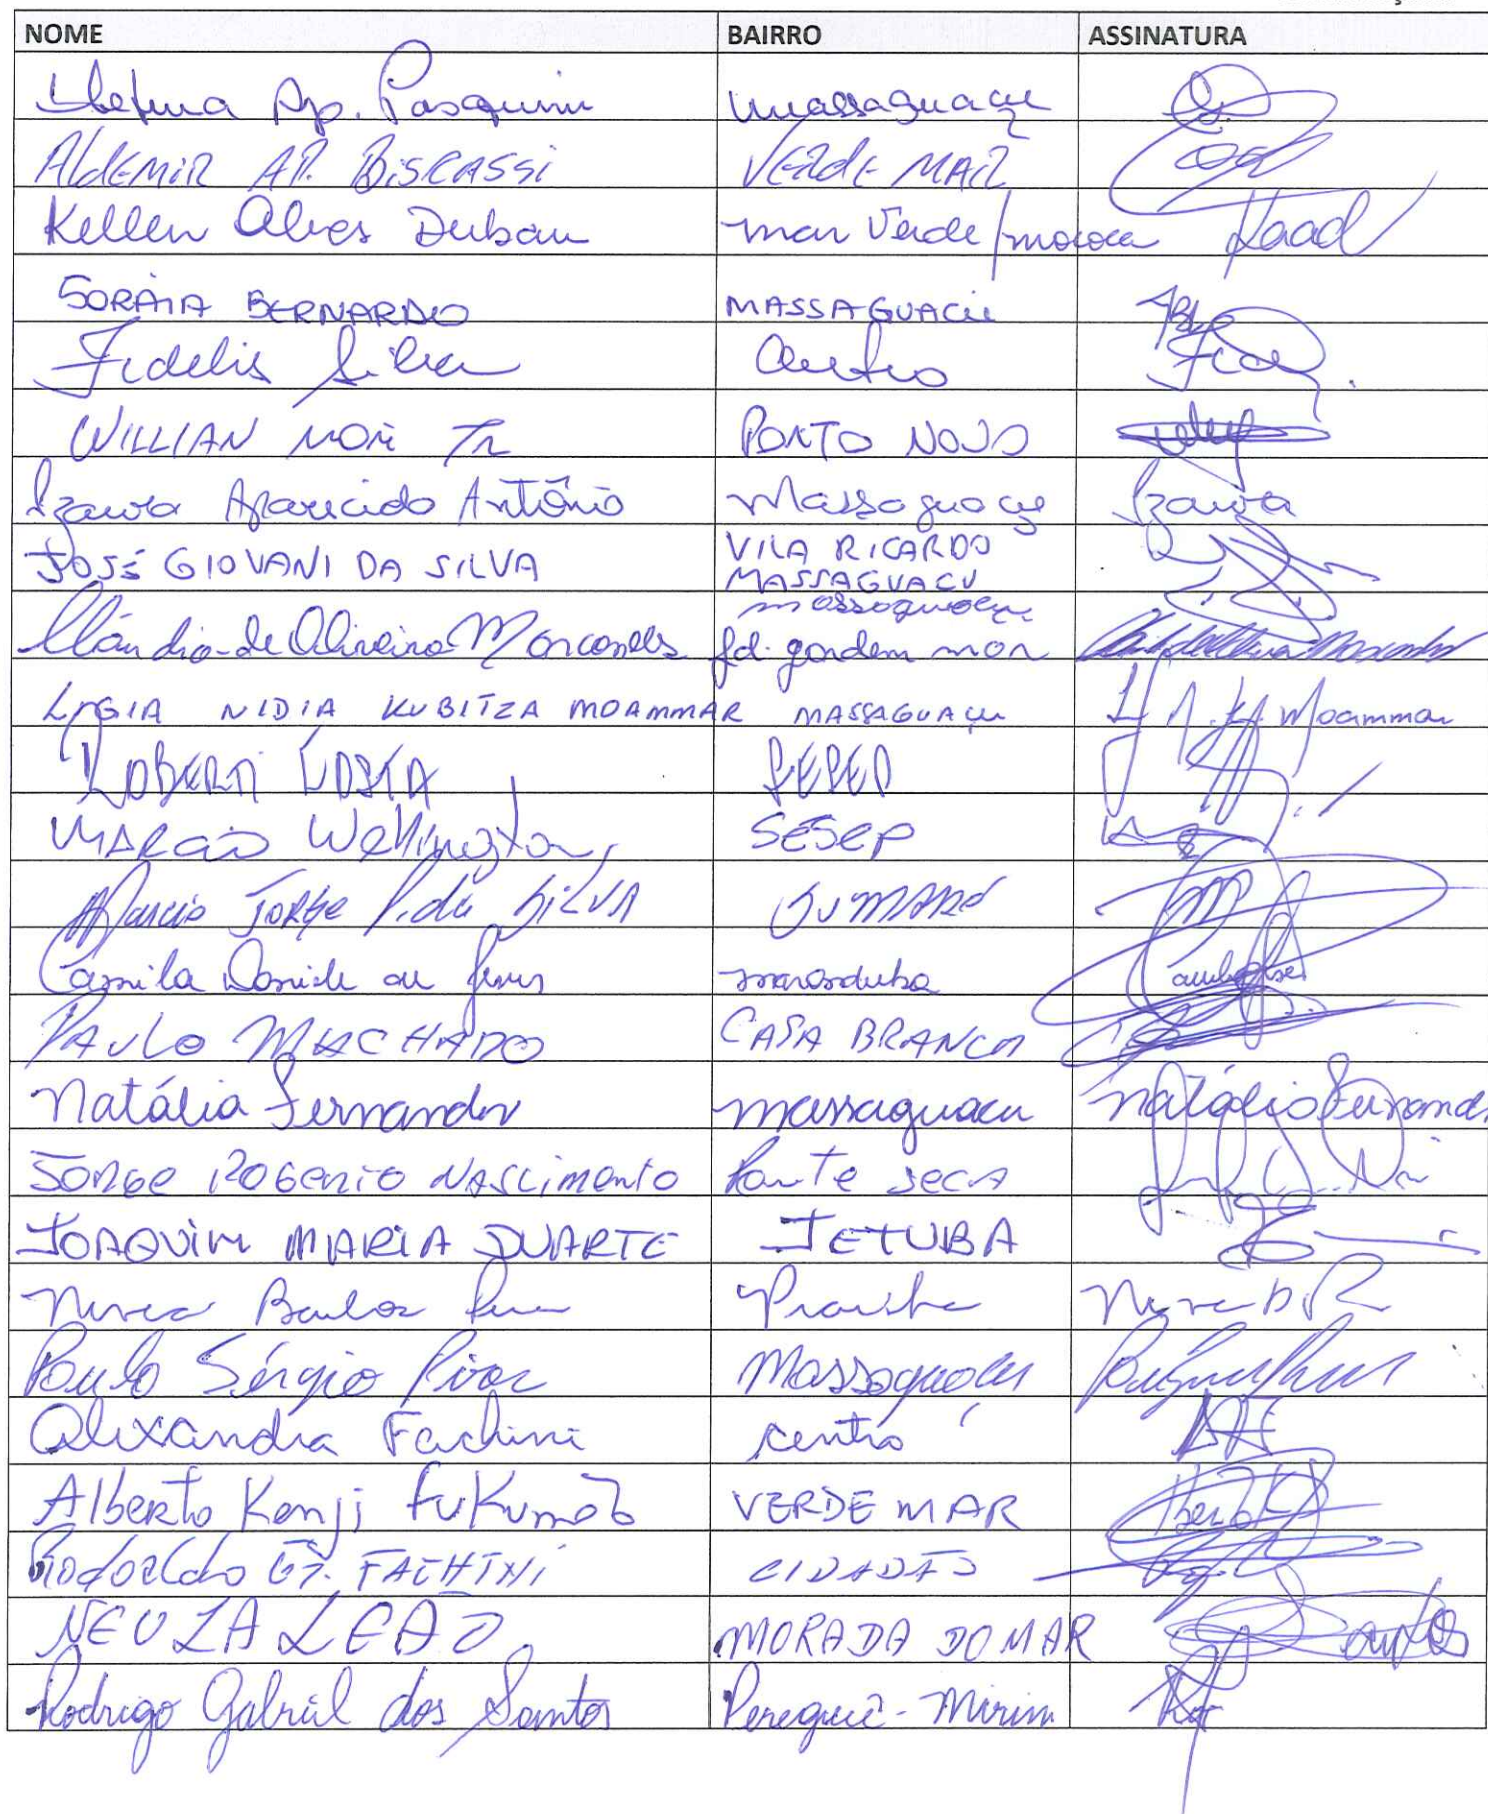 NOME BAIRRO ASSINATURA
Ap. Pasquini massaguaçu
Aldemir Ap. Biscassi Verde Mar
Kellen Alves Duban mar Verde/mococa Kaad
SORAIA BERNARDO MASSAGUAÇU
Fidelis Silva Centro
WILLIAN MORI JR PONTO NOVO
Izaura Aparecida Antônio Massaguaçu Izaura
JOSÉ GIOVANI DA SILVA VILA RICARDO
MASSAGUAÇU
massaguaçu
Cláudia de Oliveira Marcondes Jd. gardem mar
LYGIA NIDIA KUBITZA MOAMMAR MASSAGUAÇU L N. K. Moammar
ROBERTI COSTA
MARCÃO Wellington SESEP
Marcio JORGE P. da SILVA SUMARÉ
Camila maranduba
PAULO MACHADO CASA BRANCA
Natália Fernandes massaguacu Natália Fernandes
JORGE ROGERIO NASCIMENTO Ponte seca
JOAQUIM MARIA DUARTE JETUBA
Prainha
Paulo Sérgio Massaguaçu
Alixandra Fachini centro AF
Alberto Kenji Fukumoto VERDE MAR
Rodoaldo G. FACHINI CIDADÃO
NEUZA LEÃO MORADA DO MAR Santos
Rodrigo Gabriel dos Santos Perequê-Mirim